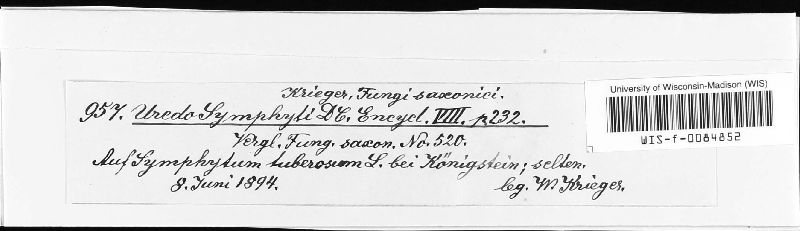 Krieger, Fungi saxonici.
957. Uredo Symphyti DC. Encycl. VIII. p. 232.
Vergl. Fung. saxon. No. 520.
Auf Symphytum tuberosum L. bei Königstein; selten.
8. Juni 1894. leg. W. Krieger.
University of Wisconsin-Madison (WIS)
WIS-f-0084852